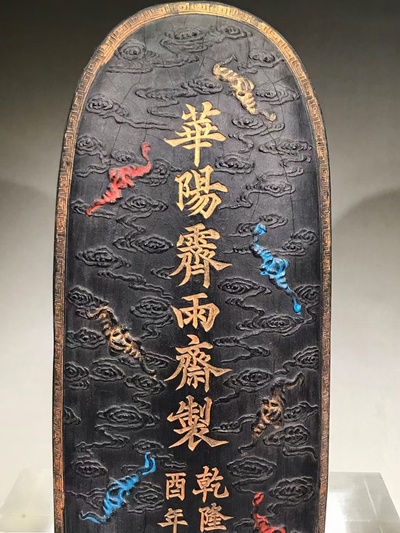 華陽霽雨齋製
乾隆
酉年